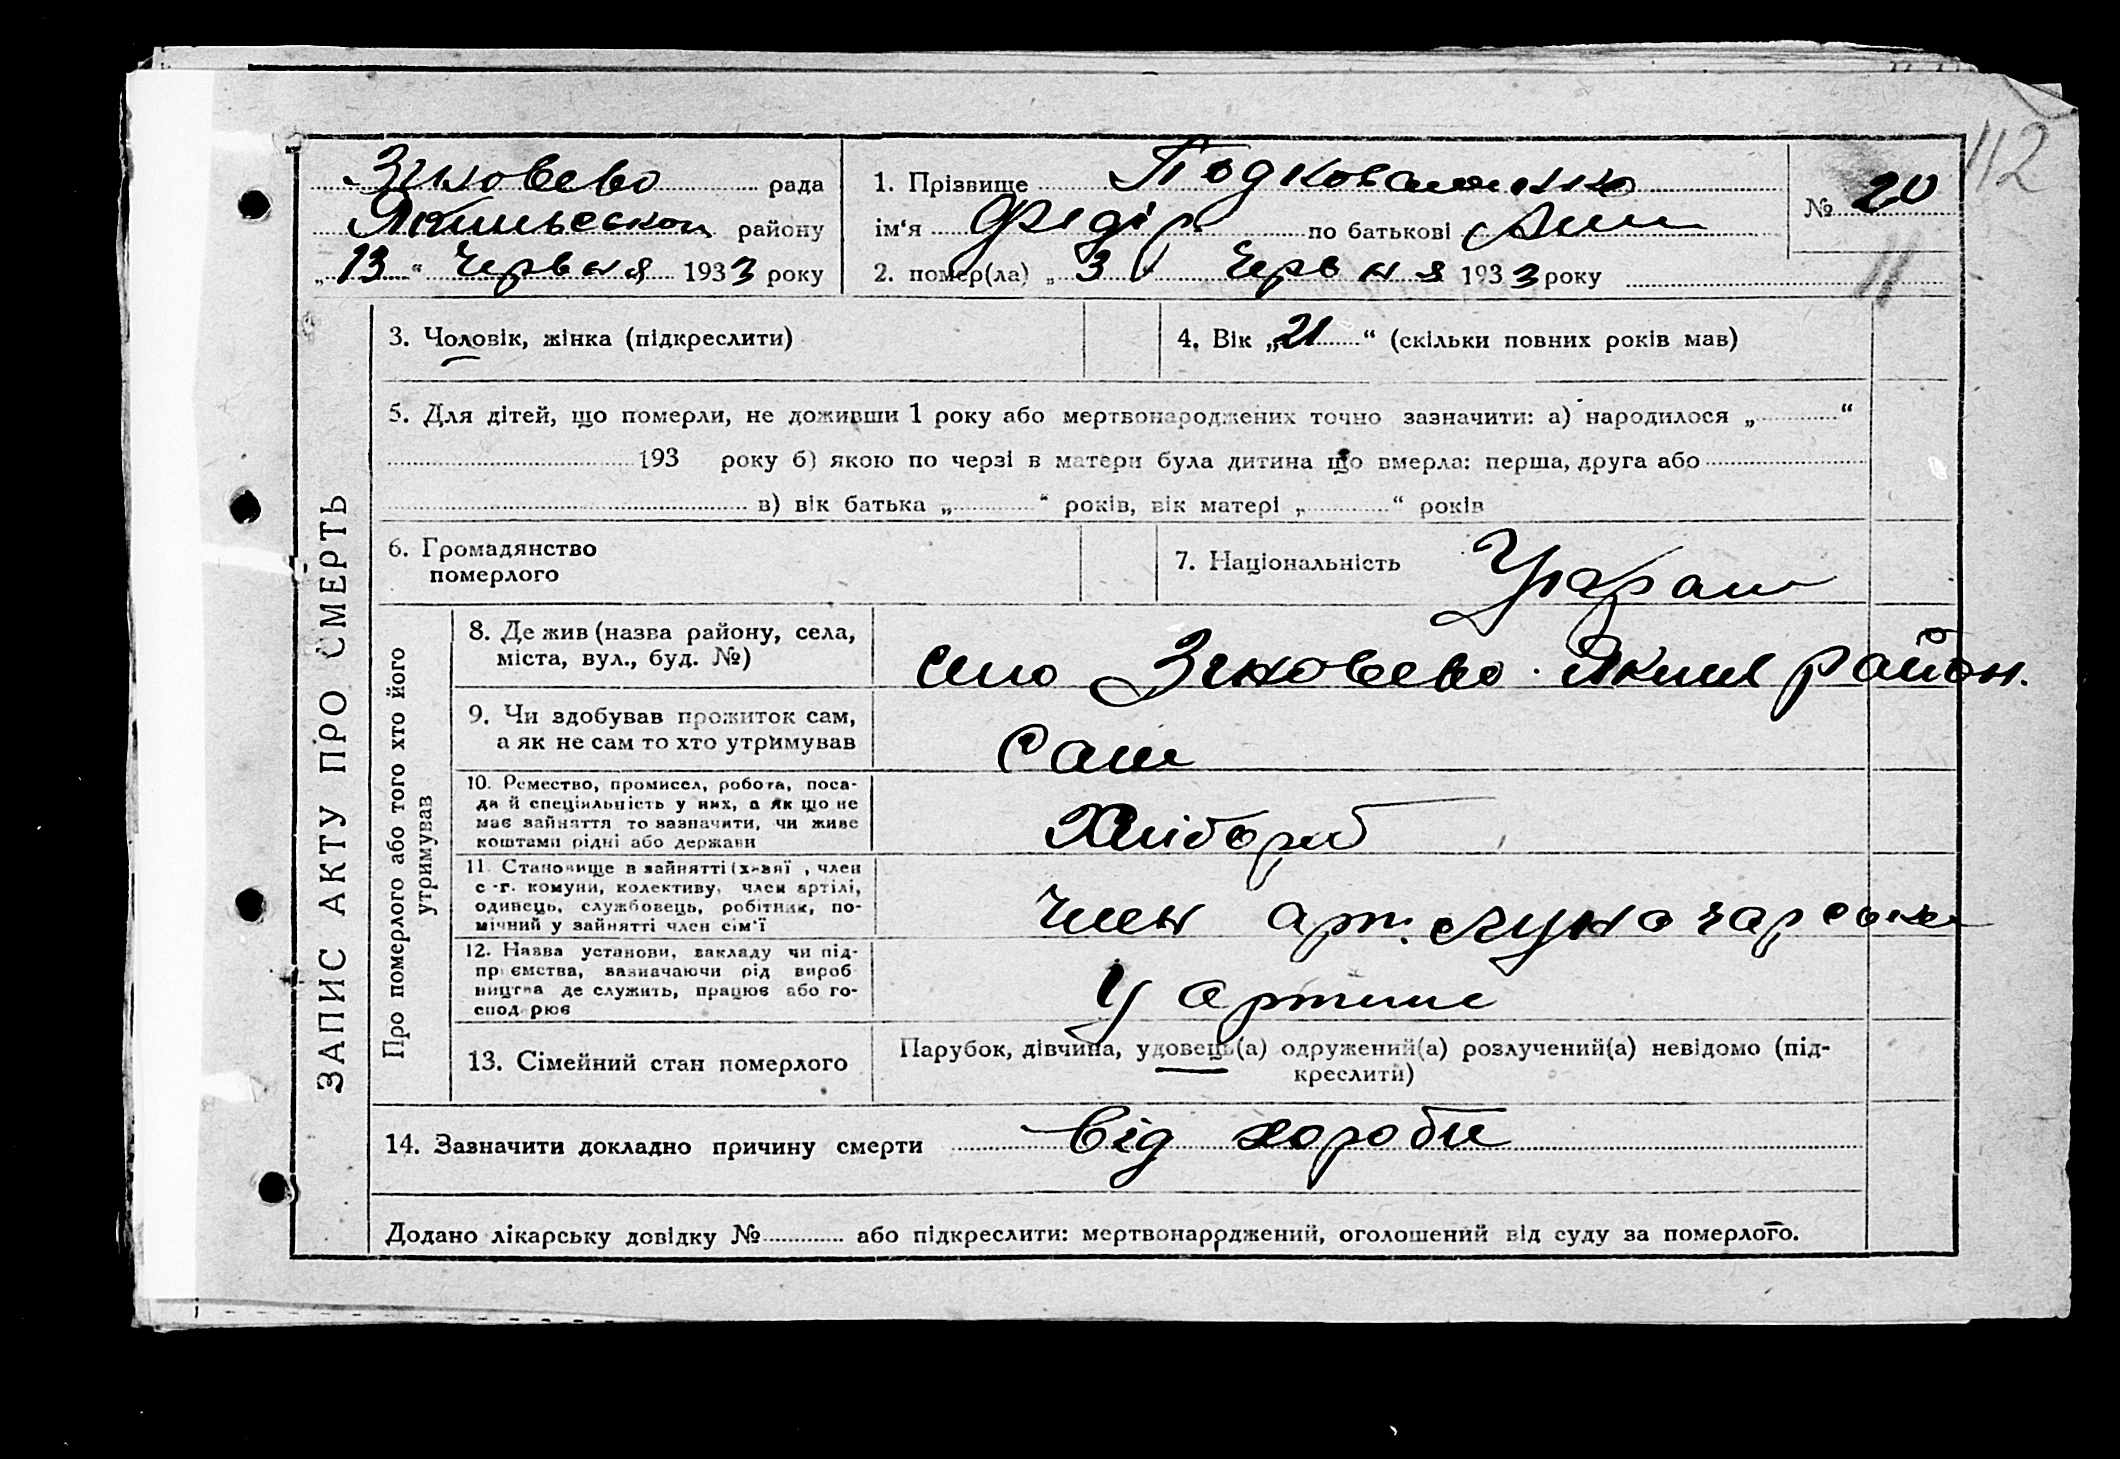 112
Зиновево рада
района
„13“ Червня 1933 року
1. Прізвище Подковаленко
ім‘я Федір по батькові
2. помер(ла) „3“ Червня 1933 року
№ 20
11
ЗАПИС АКТУ ПРО СМЕРТЬ
3. Чоловік, жінка (підкреслити)
4. Вік „21“ (скільки повних років мав)
5. Для дітей, що померли, не доживши 1 року або мертвонароджених точно зазначити: а) народилося „ “
193 року б) якою по черзі в матери була дитина що вмерла: перша, друга або
в) вік батька „ “ років, вік матері „ “ років
6. Громадянство
померлого
7. Національність Украін
Про померлого або того хто його
утримував
8. Де жив (назва району, села,
міста, вул., буд. №)
село Зиновево Яким район.
9. Чи здобував прожиток сам,
а як не сам то хто утримував
Сам
10. Ремество, промисел, робота, поса-
да й спеціяльність у них, а як що не
має зайняття то зазначити, чи живе
коштами рідні або держави
Хлібороб
11. Становище в зайнятті (х-вяї , член
с -г. комуни, колективу, член артілі,
одинець, службовець, робітник, по-
мічний у зайнятті член сім‘ї
член арт. Луночарське
12. Назва установи, закладу чи під-
приємства, вазначаючи рід вироб
ництва де служить, працює або го-
сподарює
У артили
13. Сімейний стан померлого
Парубок, дівчина, удовець(а) одружений(а) розлучений(а) невідомо (під-
креслити)
14. Зазначити докладно причину смерти від хороби
Додано лікарську довідку № або підкреслити: мертвонарорджений, оголошений від суду за померлого.